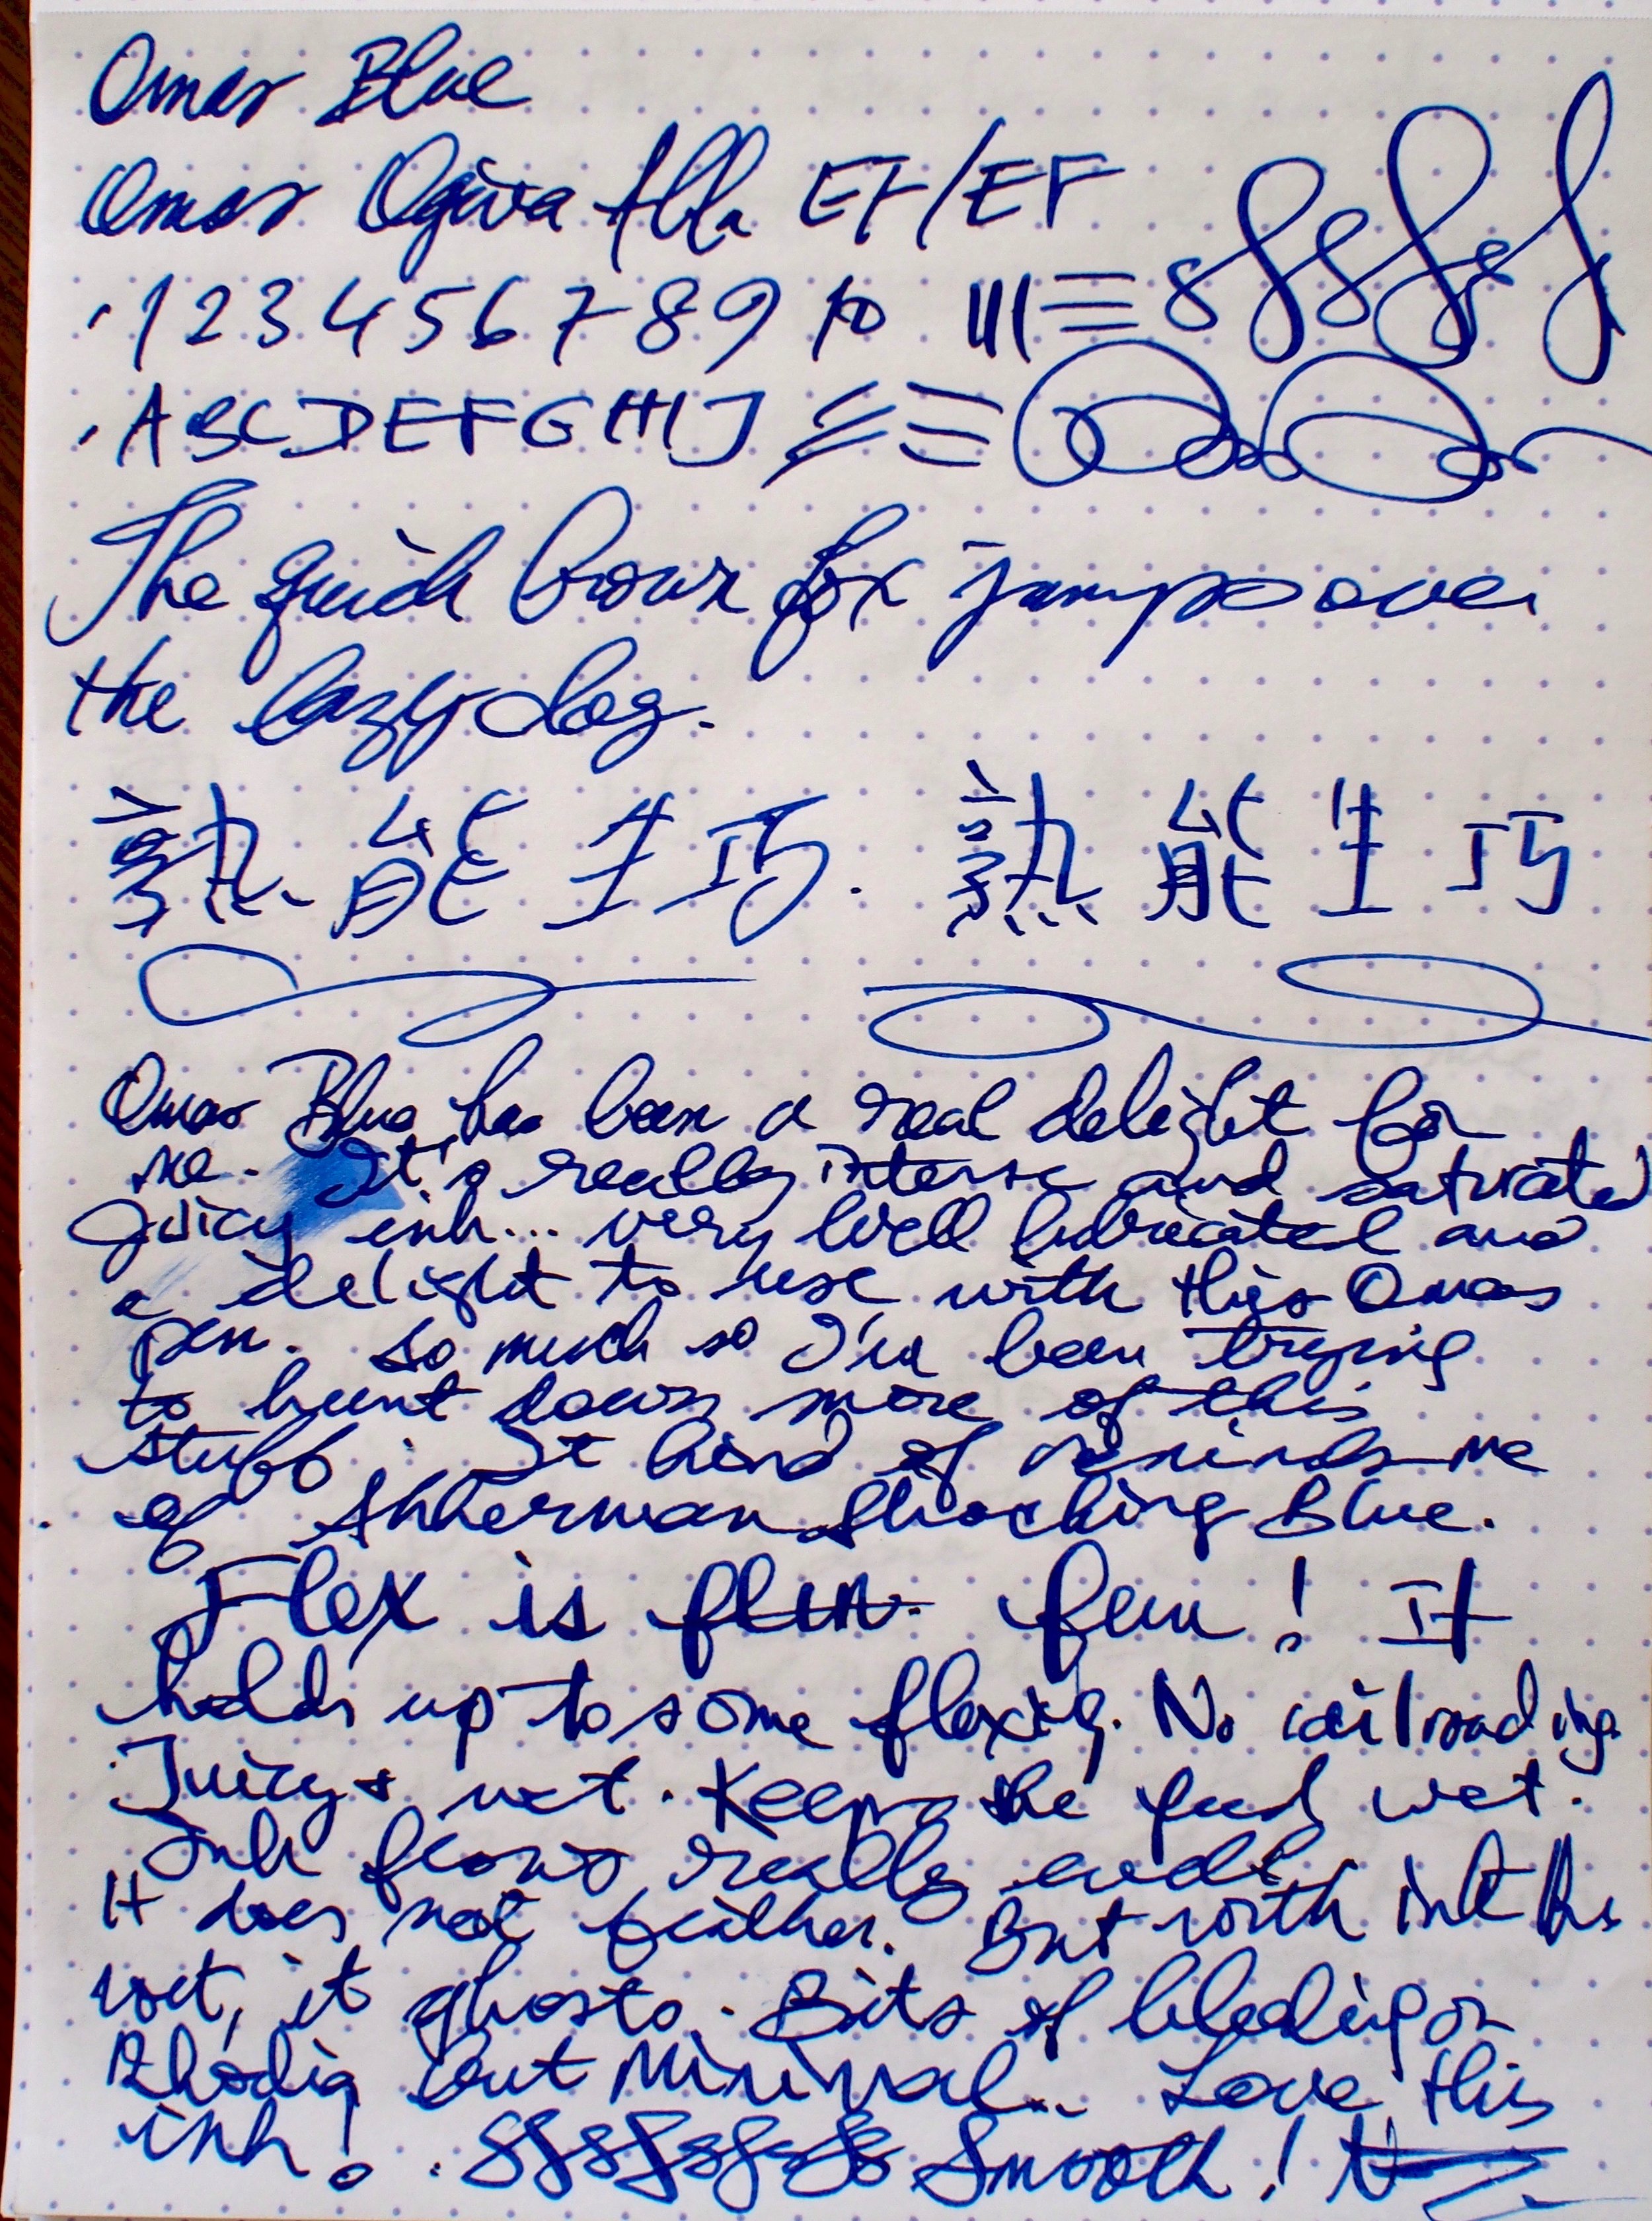 Omas Blue
Omas Ogiva Alba EF/EF
1 2 3 4 5 6 7 8 9 10
A B C D E F G H I J
The quick brown fox jumps over
the lazy dog.
熟能生巧. 熟能生巧
Omas Blue has been a real delight for
me. It's really intense and saturated
juicy ink... very well lubricated and
a delight to use with this Omas
pen. So much so I've been trying
to hunt down more of this
stuff. It kind of reminds me
of Akkerman Shocking Blue.
Flex is fun! It
holds up to some flexing. No railroading.
Juicy + wet. Keeps the feed wet.
Ink flows really well.
It does not feather. But with ink this
wet, it ghosts. Bits of bleeding on
Rhodia but minimal... Love this
ink! Smooth!